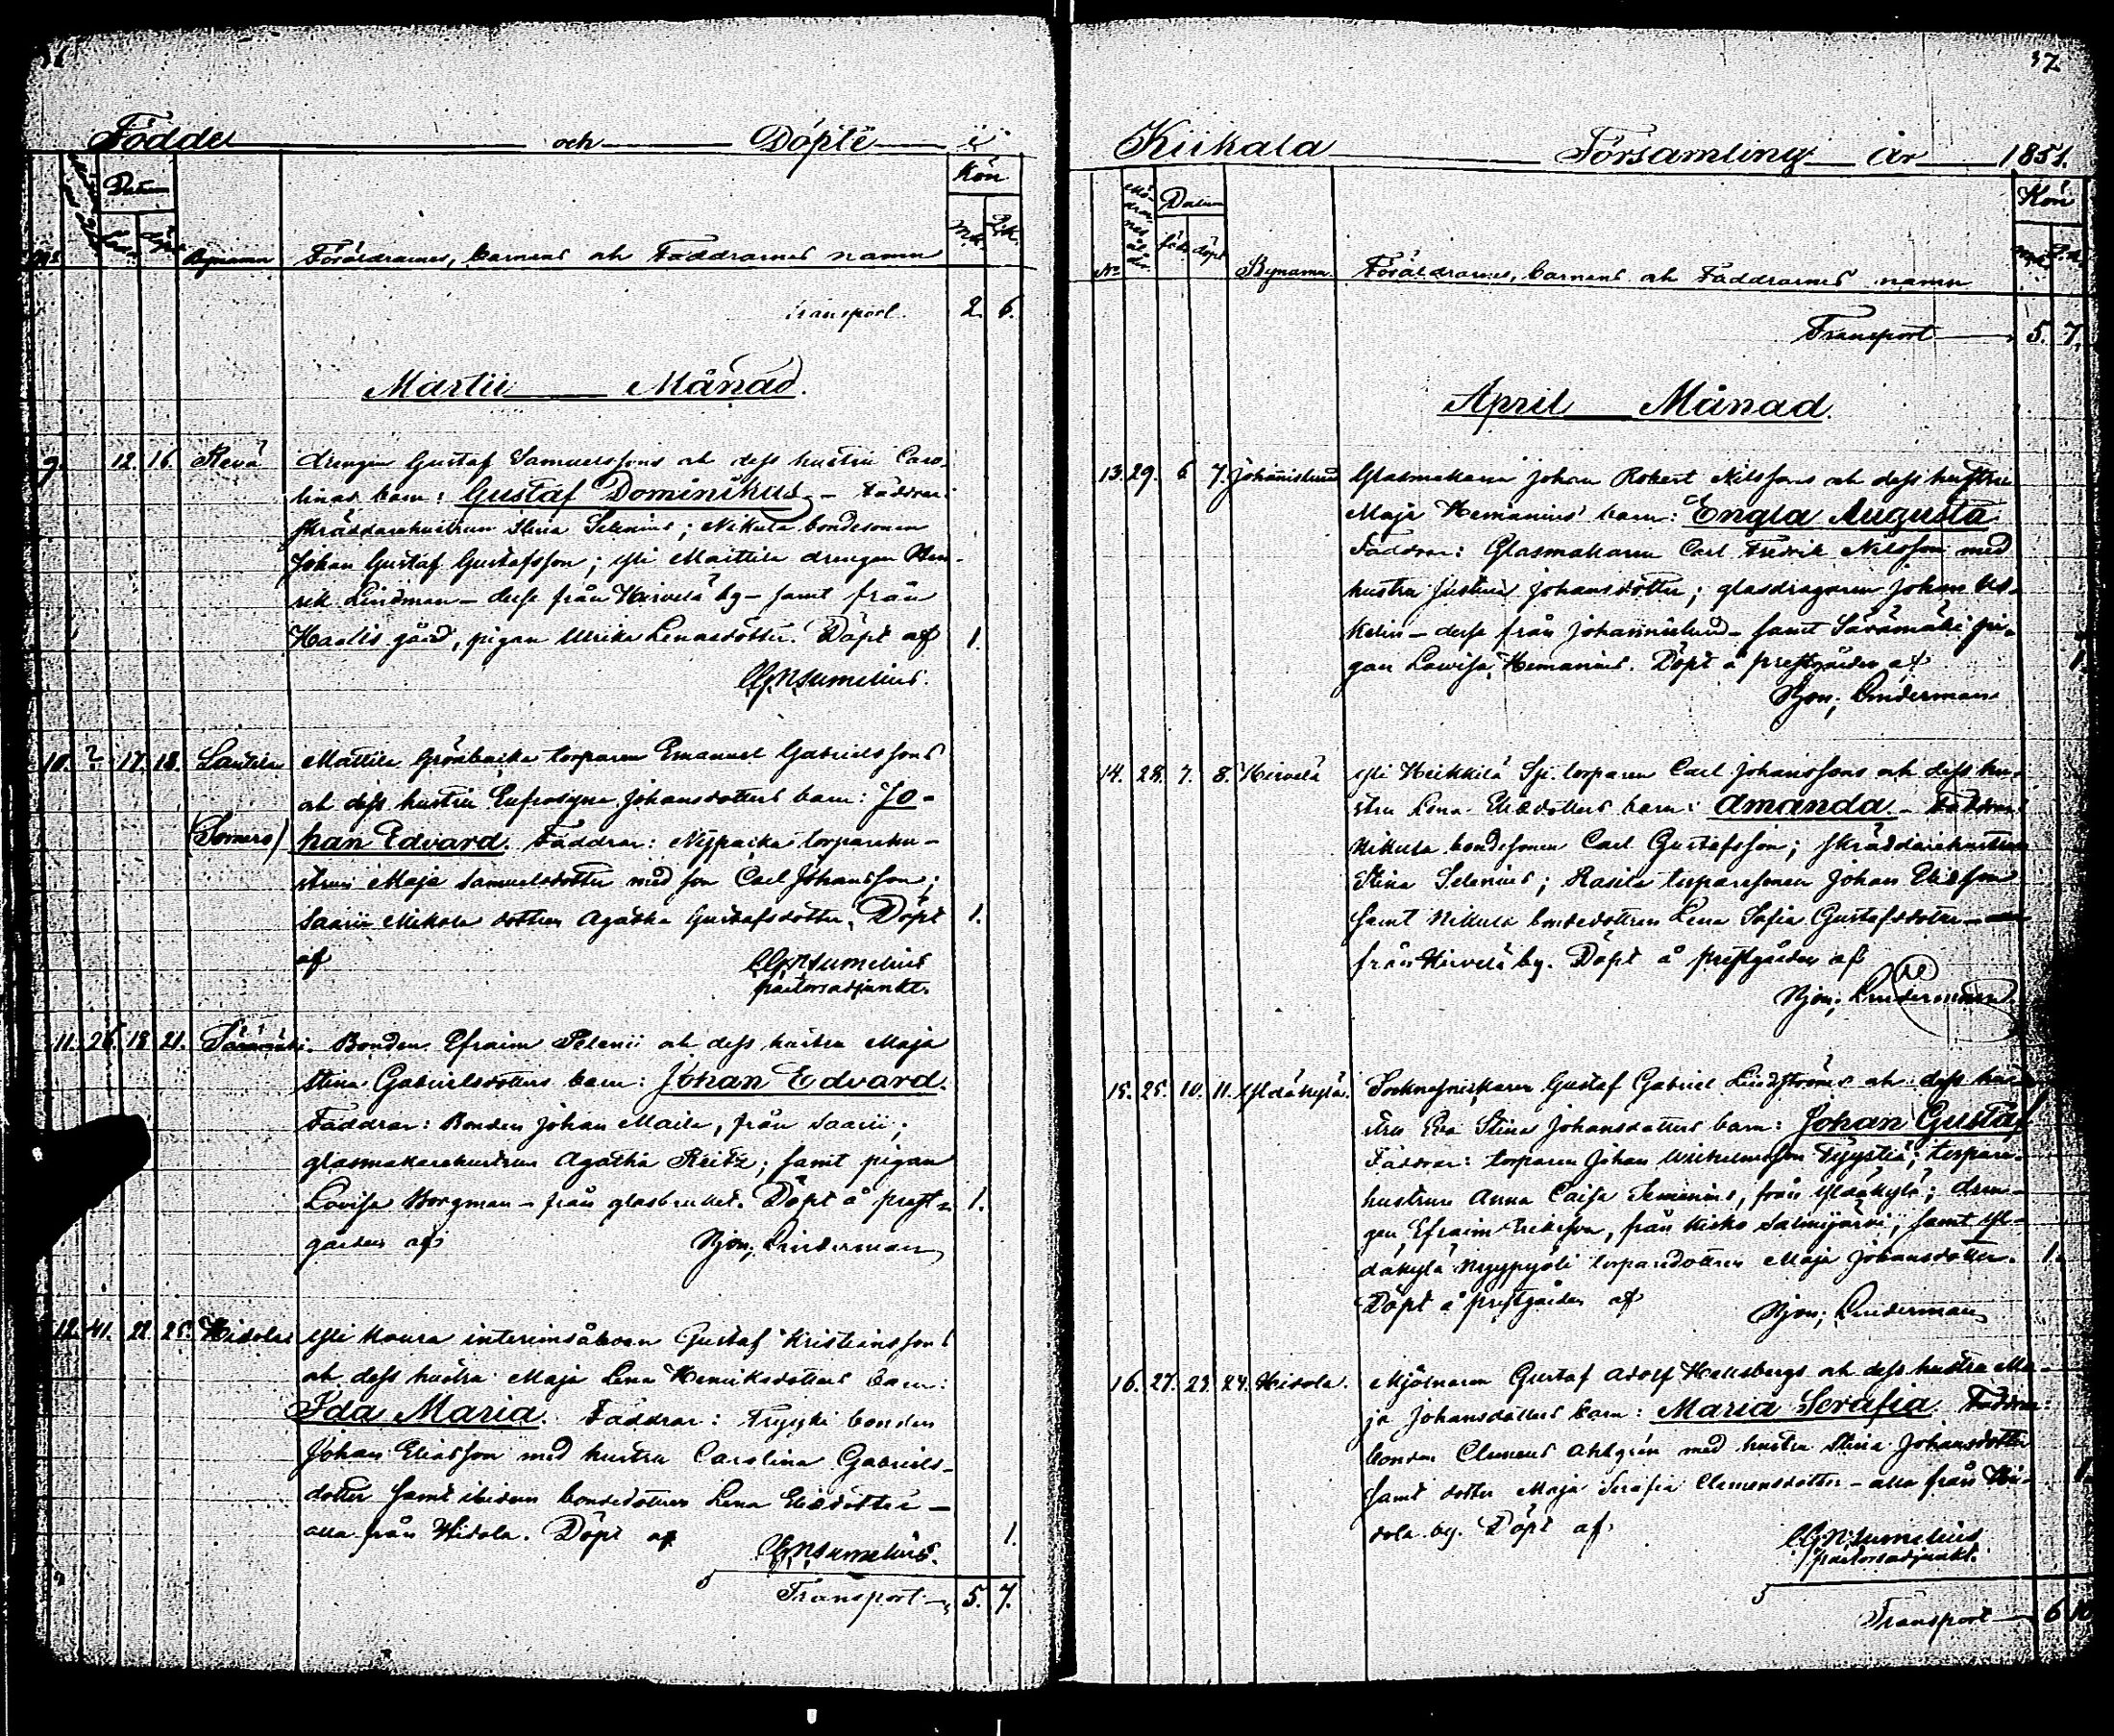 37
Födde och Döpte i
Kön
Datum
född döpt
M.k. Q.k.
No Bynamn Föräldrarnes, barnens och Faddrarnes namn
Transport. 2. 6.
Martii Månad.
9. 12. 16. Revä drengen Gustaf Samuelssons och dess hustru Caro-
linas barn: Gustaf Dominikus – Faddrar:
skräddarehustrun Stina Selenius; Nikula bondesonen
Johan Gustaf Gustafsson; Yli Maittila drengen Hen-
rik Lindman – desse från Hirvelä by – samt från
Haalis gård, pigan Ulrika Lenasdotter. Döpt af 1.
Sumelius.
10. ? 17. 18. Lautela Mattila Grönbacka torparen Emanuel Gabrielssons
och dess hustru Eufrosyna Johansdotters barn: Jo-
(Somero) han Edvard. Faddrar: Nypacka torparehu-
strun Maja Samuelsdotter med son Carl Johansson;
Saarii Mikola dottren Agatha Gustafsdotter. Döpt 1.
af Sumelius
pastorsadjunkt.
11. 26. 18. 21. Särämäki. Bonden Efraim Pelanii och dess hustru Maja
Stina Gabrielsdotters barn: Johan Edvard.
Faddrar: Bonden Johan Maila, från Saarii;
glasmakarehustrun Agatha Reitz; samt pigan
Lovisa Borgman – från glasbruket. Döpt å prest- 1.
gården af Bjon; Linderman
12. 41. 22. 25. Hidola Yli Koura interimsåboen Gustaf Kristianssons
och dess hustru Maja Lena Henriksdotters barn:
Ida Maria. Faddrar: Tryyki bonden
Johan Eliasson med hustru Carolina Gabriels-
dotter samt ibidem bondedottren Lena Eliædotter –
alla från Hidola. Döpt af 1.
Sumelius.
Transport 5. 7.
Kiikala Församling år 1851.
Mö-
drar-
nes
ål-
der.
Datum
född döpt
Kön
No Bynamn. Föräldrarnes, barnens och Faddrarnes namn
Transport 5. 7.
April Månad.
13. 29. 6 7. Johannislund Glasmakaren Johan Robert Nilssons och dess hustru
Maja Hemanius' barn: Engla Augusta
Faddrar: Glasmakaren Carl Fredrik Nilsson med
hustru Justina Johansdotter; glasdragaren Johan As-
kelin – desse från Johannislund – samt Särämäki pi-
gan Lovisa Hemanius. Döpt å prestgården af 1.
Bjon; Linderman
14. 28. 7. 8. Hirvelä Yli Heikkilä Sji torparen Carl Johanssons och dess hu-
stru Lena Eliædotters barn: Amanda – Faddrar:
Nikula bondesonen Carl Gustafsson; skräddarehustrun
Stina Selenius; Rasila torparesonen Johan Eliasson
samt Nikula bondedottren Lena Sofia Gustafsdotter –
från Hirvelä by. Döpt å prestgården af
Bjon; Linderman
15. 25. 10. 11. Yldäkylä. Socknesnickaren Gustaf Gabriel Lindströms och dess hu-
stru Eva Stina Johansdotters barn: Johan Gustaf
Faddrar: torparen Johan Wilhelmsson Tyystiä; torpare-
hustrun Anna Caisa Semenius, från Yldäkylä; dren-
gen, Efraim Eriksson, från Kisko Salmijärvi; samt Yl-
däkylä Nyypyöli torparedottren Maja Johansdotter. 1.
Döpt å prestgården af
Bjon; Linderman
16. 27. 23. 24. Hidola. Mjölnaren Gustaf Adolf Hellsbergs och dess hustru Ma-
ja Johansdotters barn: Maria Serafia. Faddrar:
bonden Clemens Ahlgrén med hustru Stina Johansdotter
samt dotter Maja Serafia Clemensdotter – alla från Hi- 1.
dola by. Döpt af
Sumelius
pastorsadjunkt.
Transport 6. 10